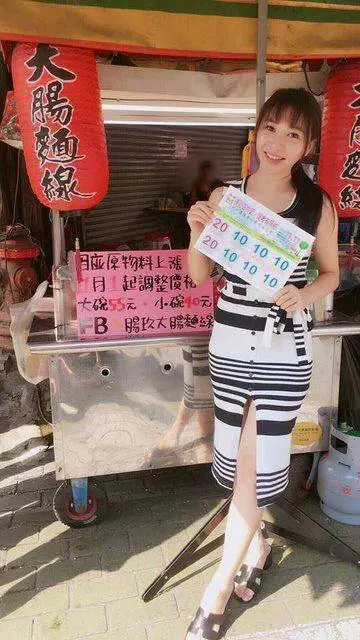 大腸麵線
因應原物料上漲
月1起調整價格
大碗55元 小碗40元
FB 腸玖大腸麵線
20 10 10 10
20 10 10 10